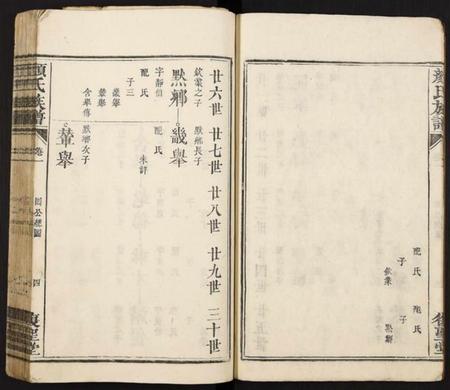 顏氏族譜
配氏
子
欽業
配氏
子
默鄉
復聖堂
廿六世 廿七世 廿八世 廿九世 三十世
欽業之子
默鄉
字靜伯
配氏
子三
默鄉長子
畿舉
配氏
朱詳
默鄉次子
輦舉
顏氏族譜
卷
四
復聖堂